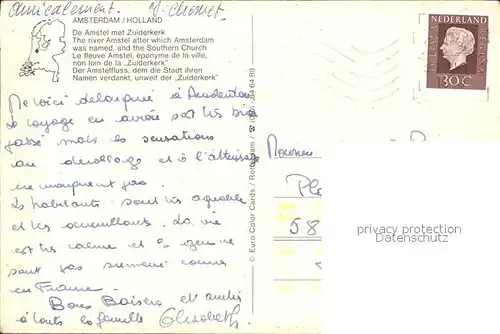 Amicalement. Chomet
AMSTERDAM / HOLLAND
De Amstel met Zuiderkerk
The river Amstel after which Amsterdam
was named, and the Southern Church
Le fleuve Amstel, éponyme de la ville,
non loin de la „Zuiderkerk"
Der Amstelfluss, dem die Stadt ihren
Namen verdankt, unweit der „Zuiderkerk"
NEDERLAND
30 C
Me voici à Amsterdam
Le voyage en avion s'est très bien
passé mais les sensations
au décollage et à l'atterrissage
ne manquent pas.
Les habitants sont très agréables
et très accueillants. La vie
est très calme et les gens ne
sont pas comme
en France.
Bons Baisers et amitiés
à toute la famille Elisabeth
© Euro Color Cards / Rotterdam
Pl
58
privacy protection
Datenschutz